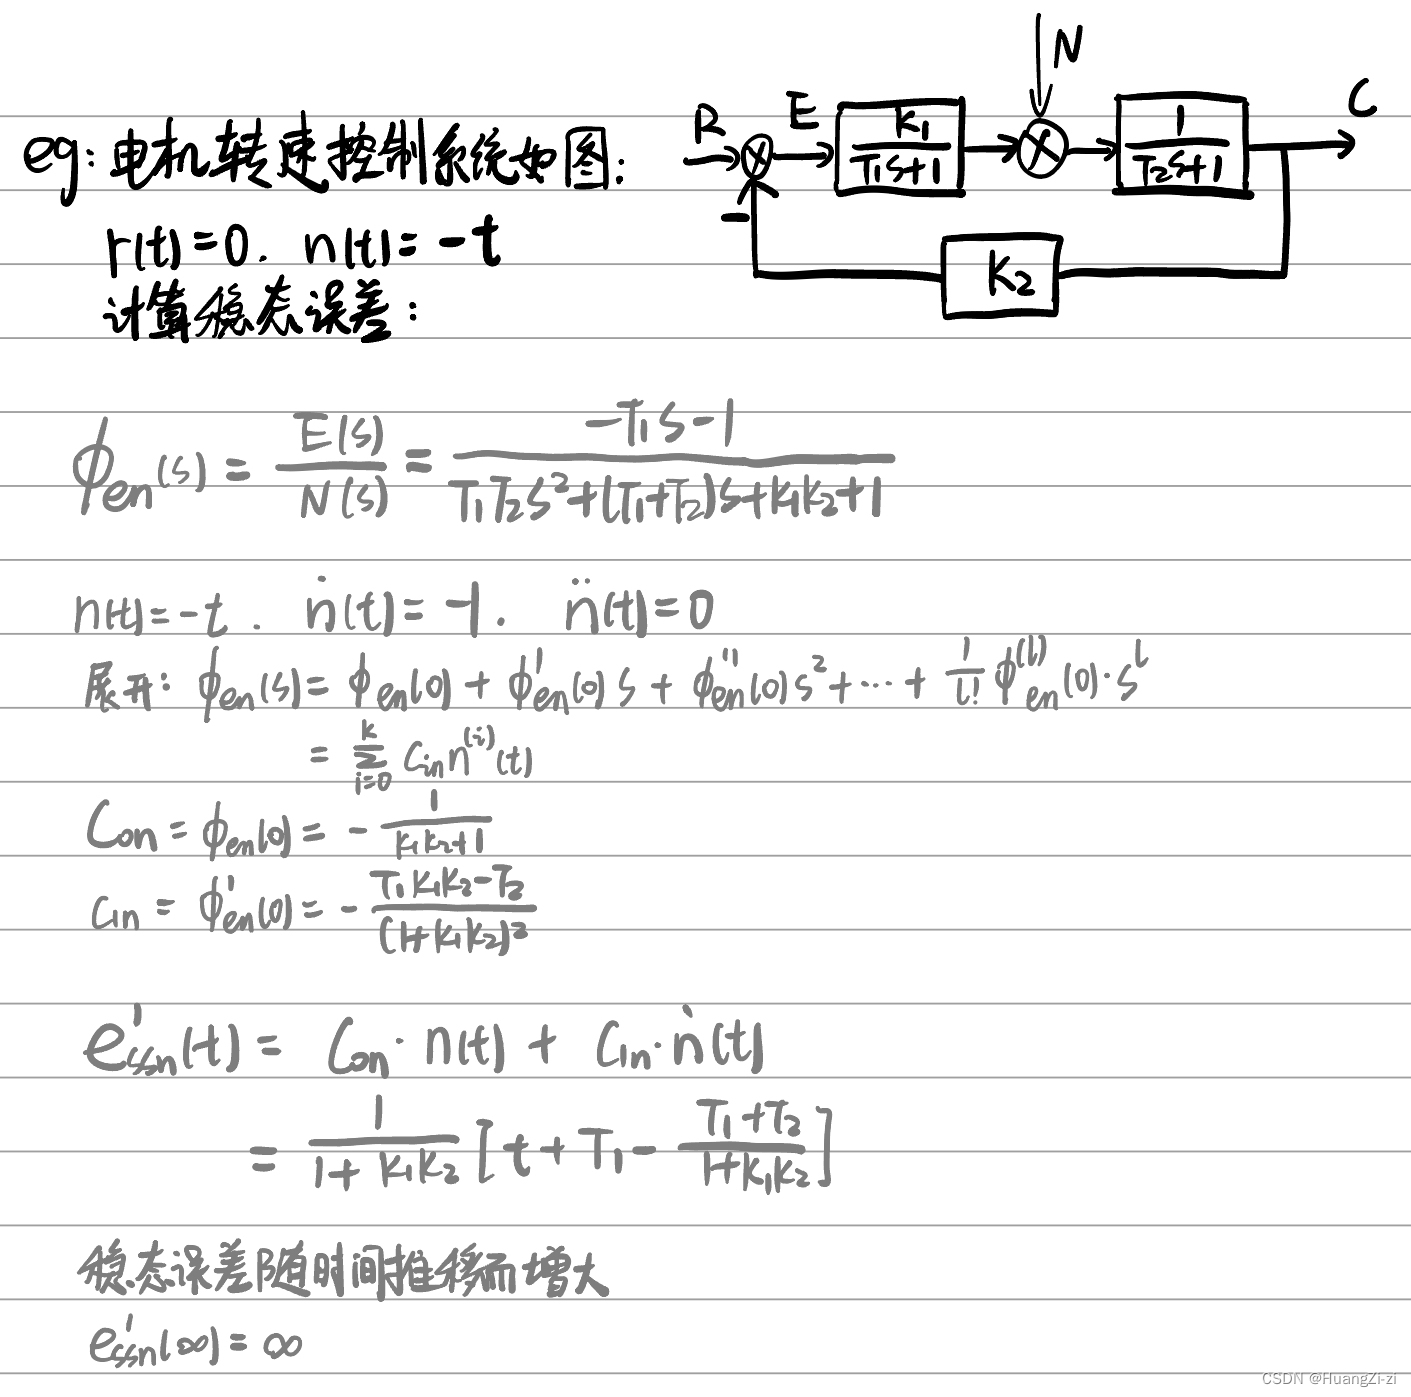 eg: 电机转速控制系统如图:
r(t)=0. n(t)=-t
计算稳态误差:
R E K₁/(T₁s+1) N 1/(T₂s+1) C
- K₂
ϕen(s) = E(s)/N(s) = (-T₁s-1)/(T₁T₂s²+(T₁+T₂)s+K₁K₂+1)
n(t)=-t. ṅ(t)=-1. n̈(t)=0
展开: ϕen(s) = ϕen(0) + ϕ'en(0)s + ϕ''en(0)s²+⋯+ 1/l! ϕ⁽ˡ⁾en(0)·sˡ
= Σ(i=0→k) Cin n⁽ⁱ⁾(t)
C₀n = ϕen(0) = - 1/(K₁K₂+1)
C₁n = ϕ'en(0) = - (T₁K₁K₂-T₂)/(1+K₁K₂)²
e'ssn(t) = C₀n·n(t) + C₁n·ṅ(t)
= 1/(1+K₁K₂) [t+T₁- (T₁+T₂)/(1+K₁K₂)]
稳态误差随时间推移而增大
e'ssn(∞)=∞
CSDN @HuangZi-zi